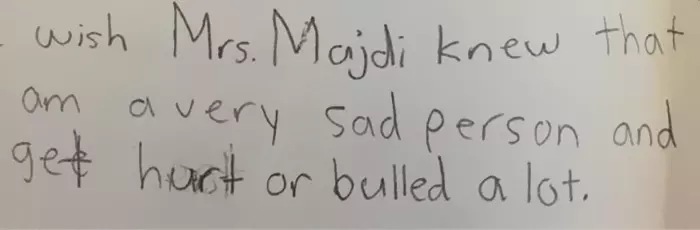 wish Mrs. Majdi knew that
am a very sad person and
get hurt or bulled a lot.